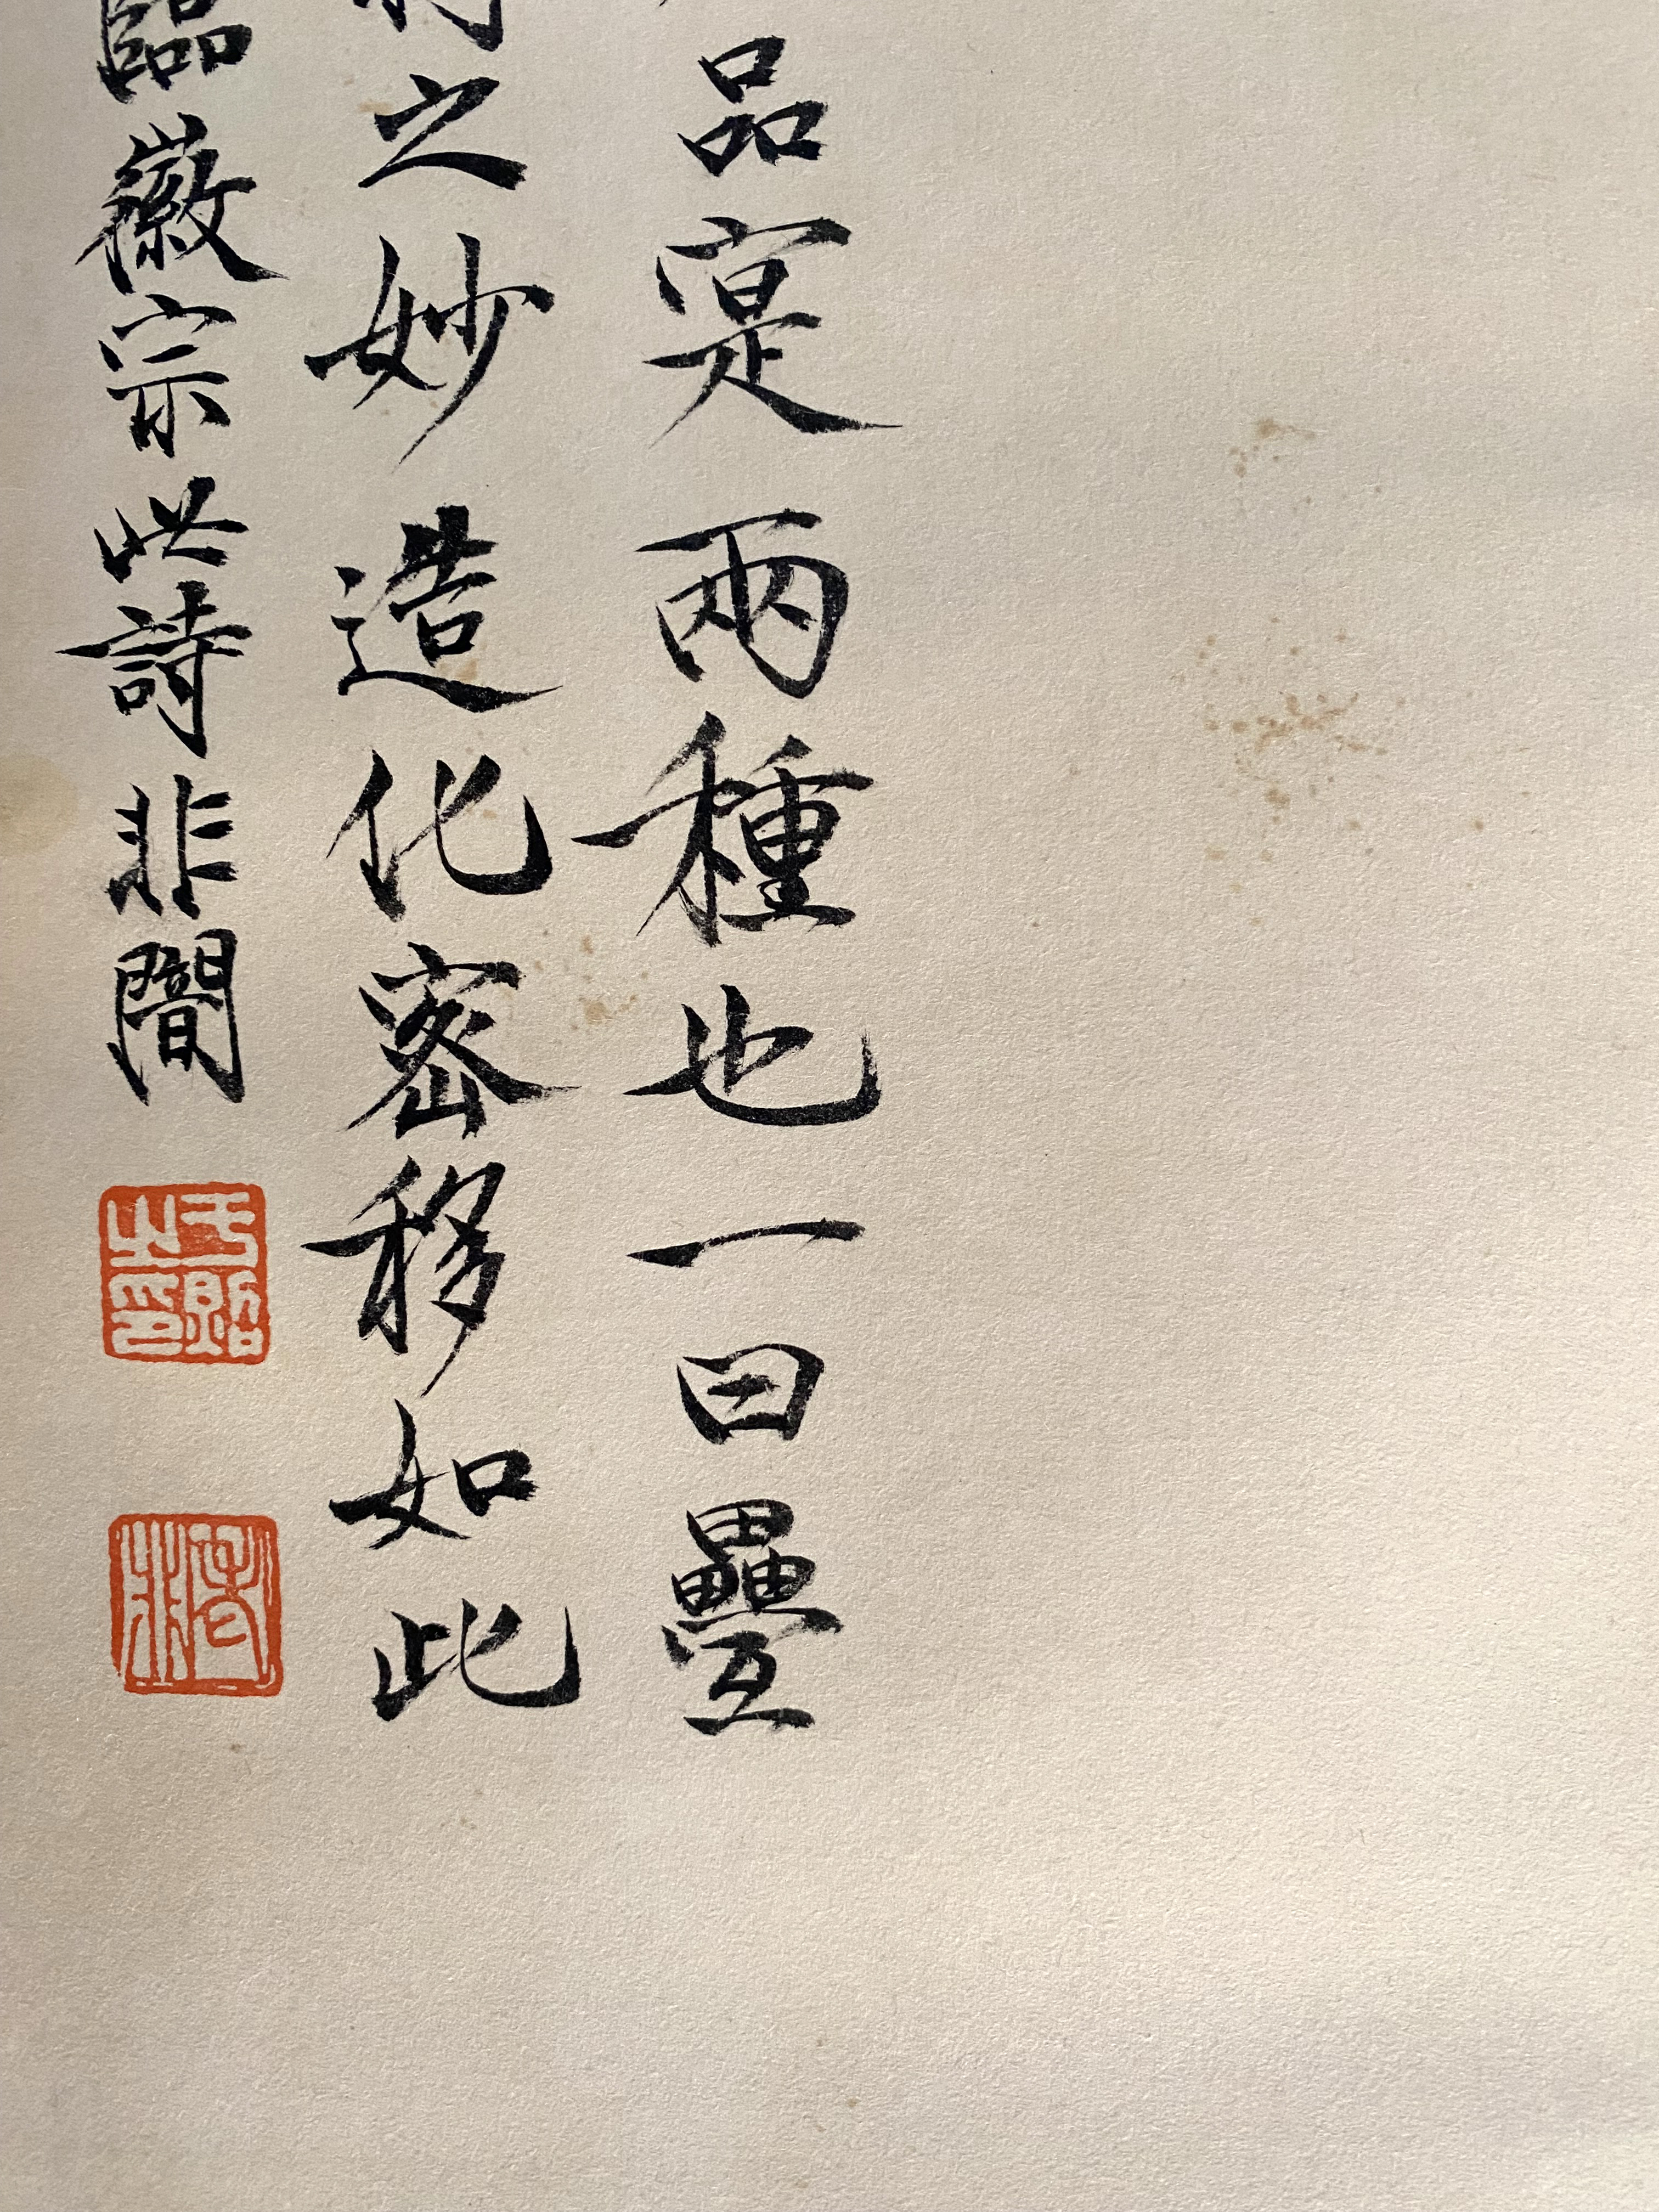 品寔兩種也一曰疊
之妙造化密移如此
臨徽宗此詩非闇
于照之印